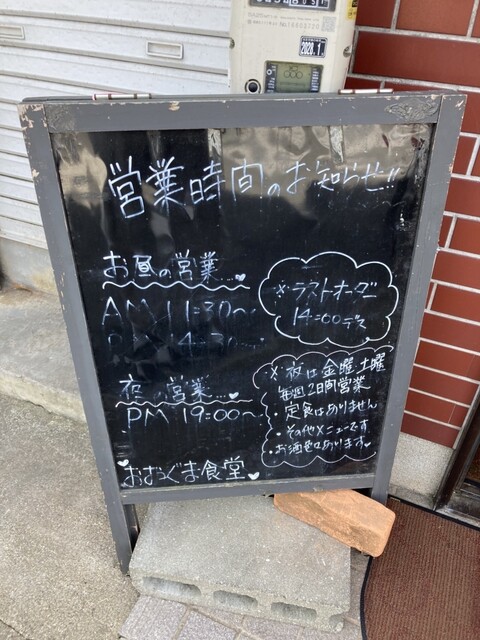 2028.1
営業時間のお知らせ!!
お昼の営業...♥
AM 11:30〜
PM 14:30〜
※ラストオーダー
14:00デス
夜の営業...♥
PM 19:00〜
※夜は金曜・土曜
毎週2日間営業
・定食はありません
・その他メニューです
・お酒類あります♥
♥おおぐま食堂♥